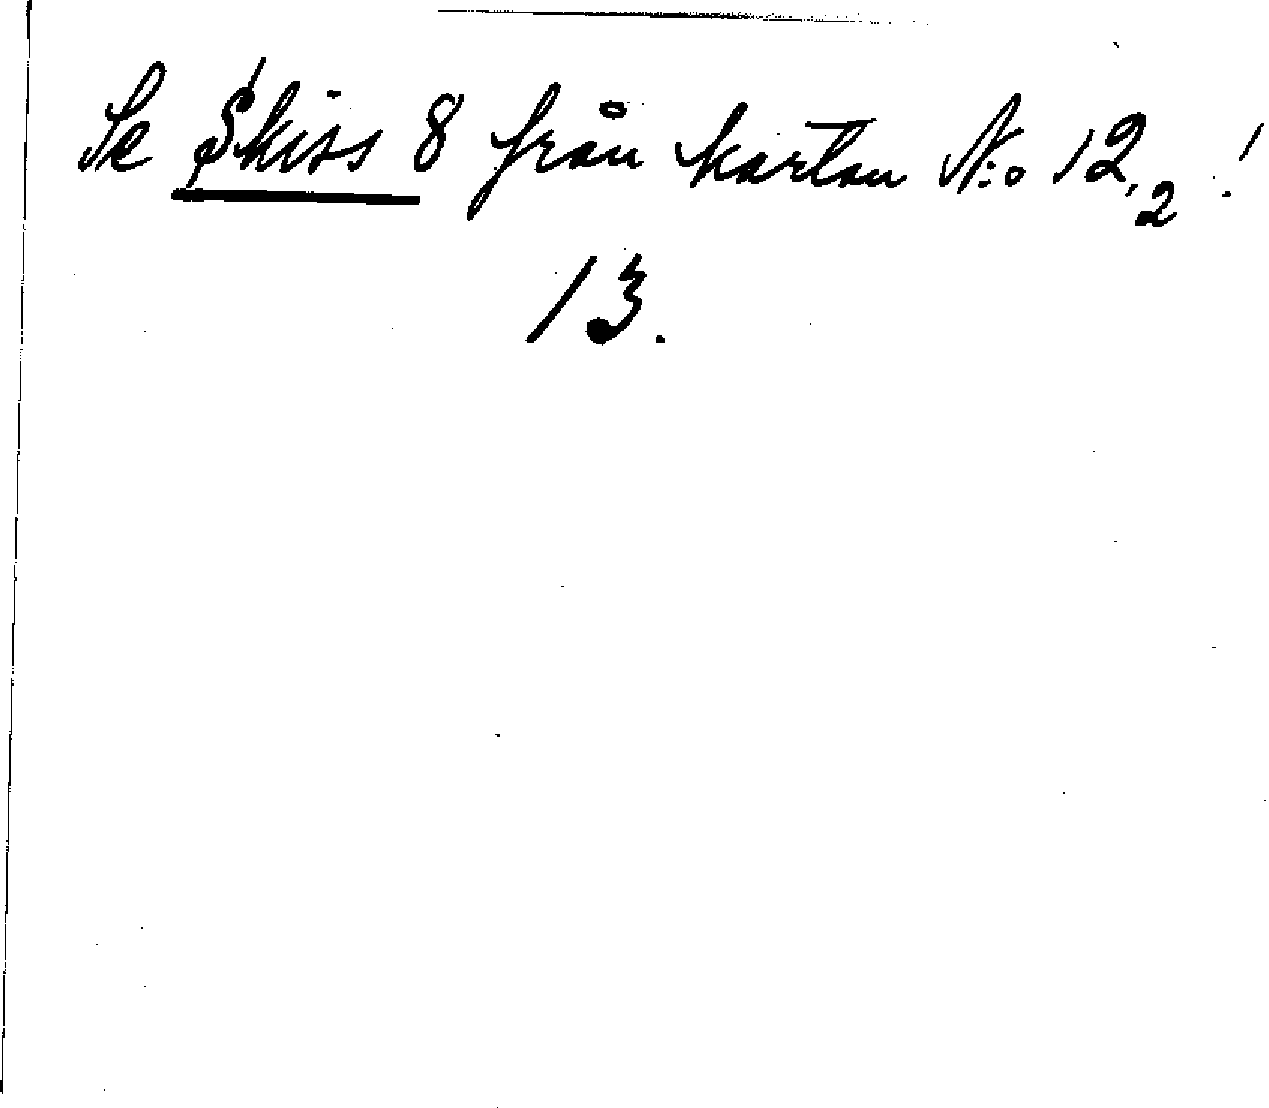 Se Skiss 8 från kartan N:o 12,2!
13.